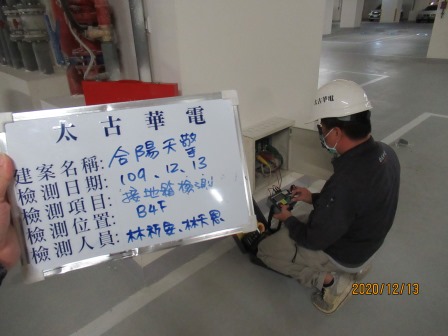 太古華電
建案名稱: 合陽天擎
檢測日期: 109.12.13
檢測項目: 接地箱檢測
檢測位置: B4F
檢測人員: 林新恩、林天恩
太古華電
2020/12/13